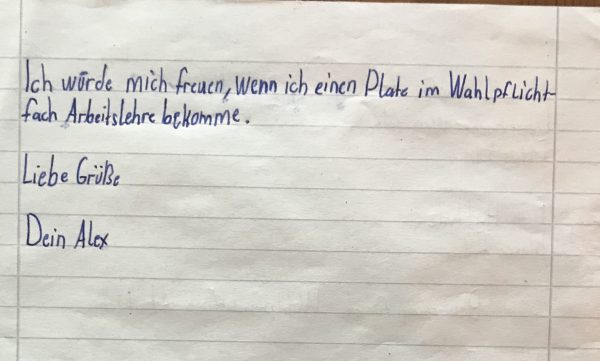 Ich würde mich freuen, wenn ich einen Platz im Wahlpflicht-
fach Arbeitslehre bekomme.
Liebe Grüße
Dein Alex